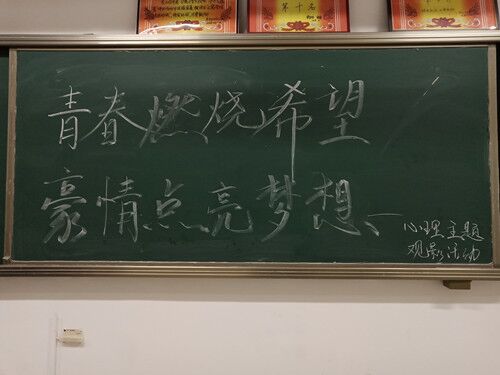 第十名
青春燃烧希望
豪情点亮梦想、
—心理主题
观影活动